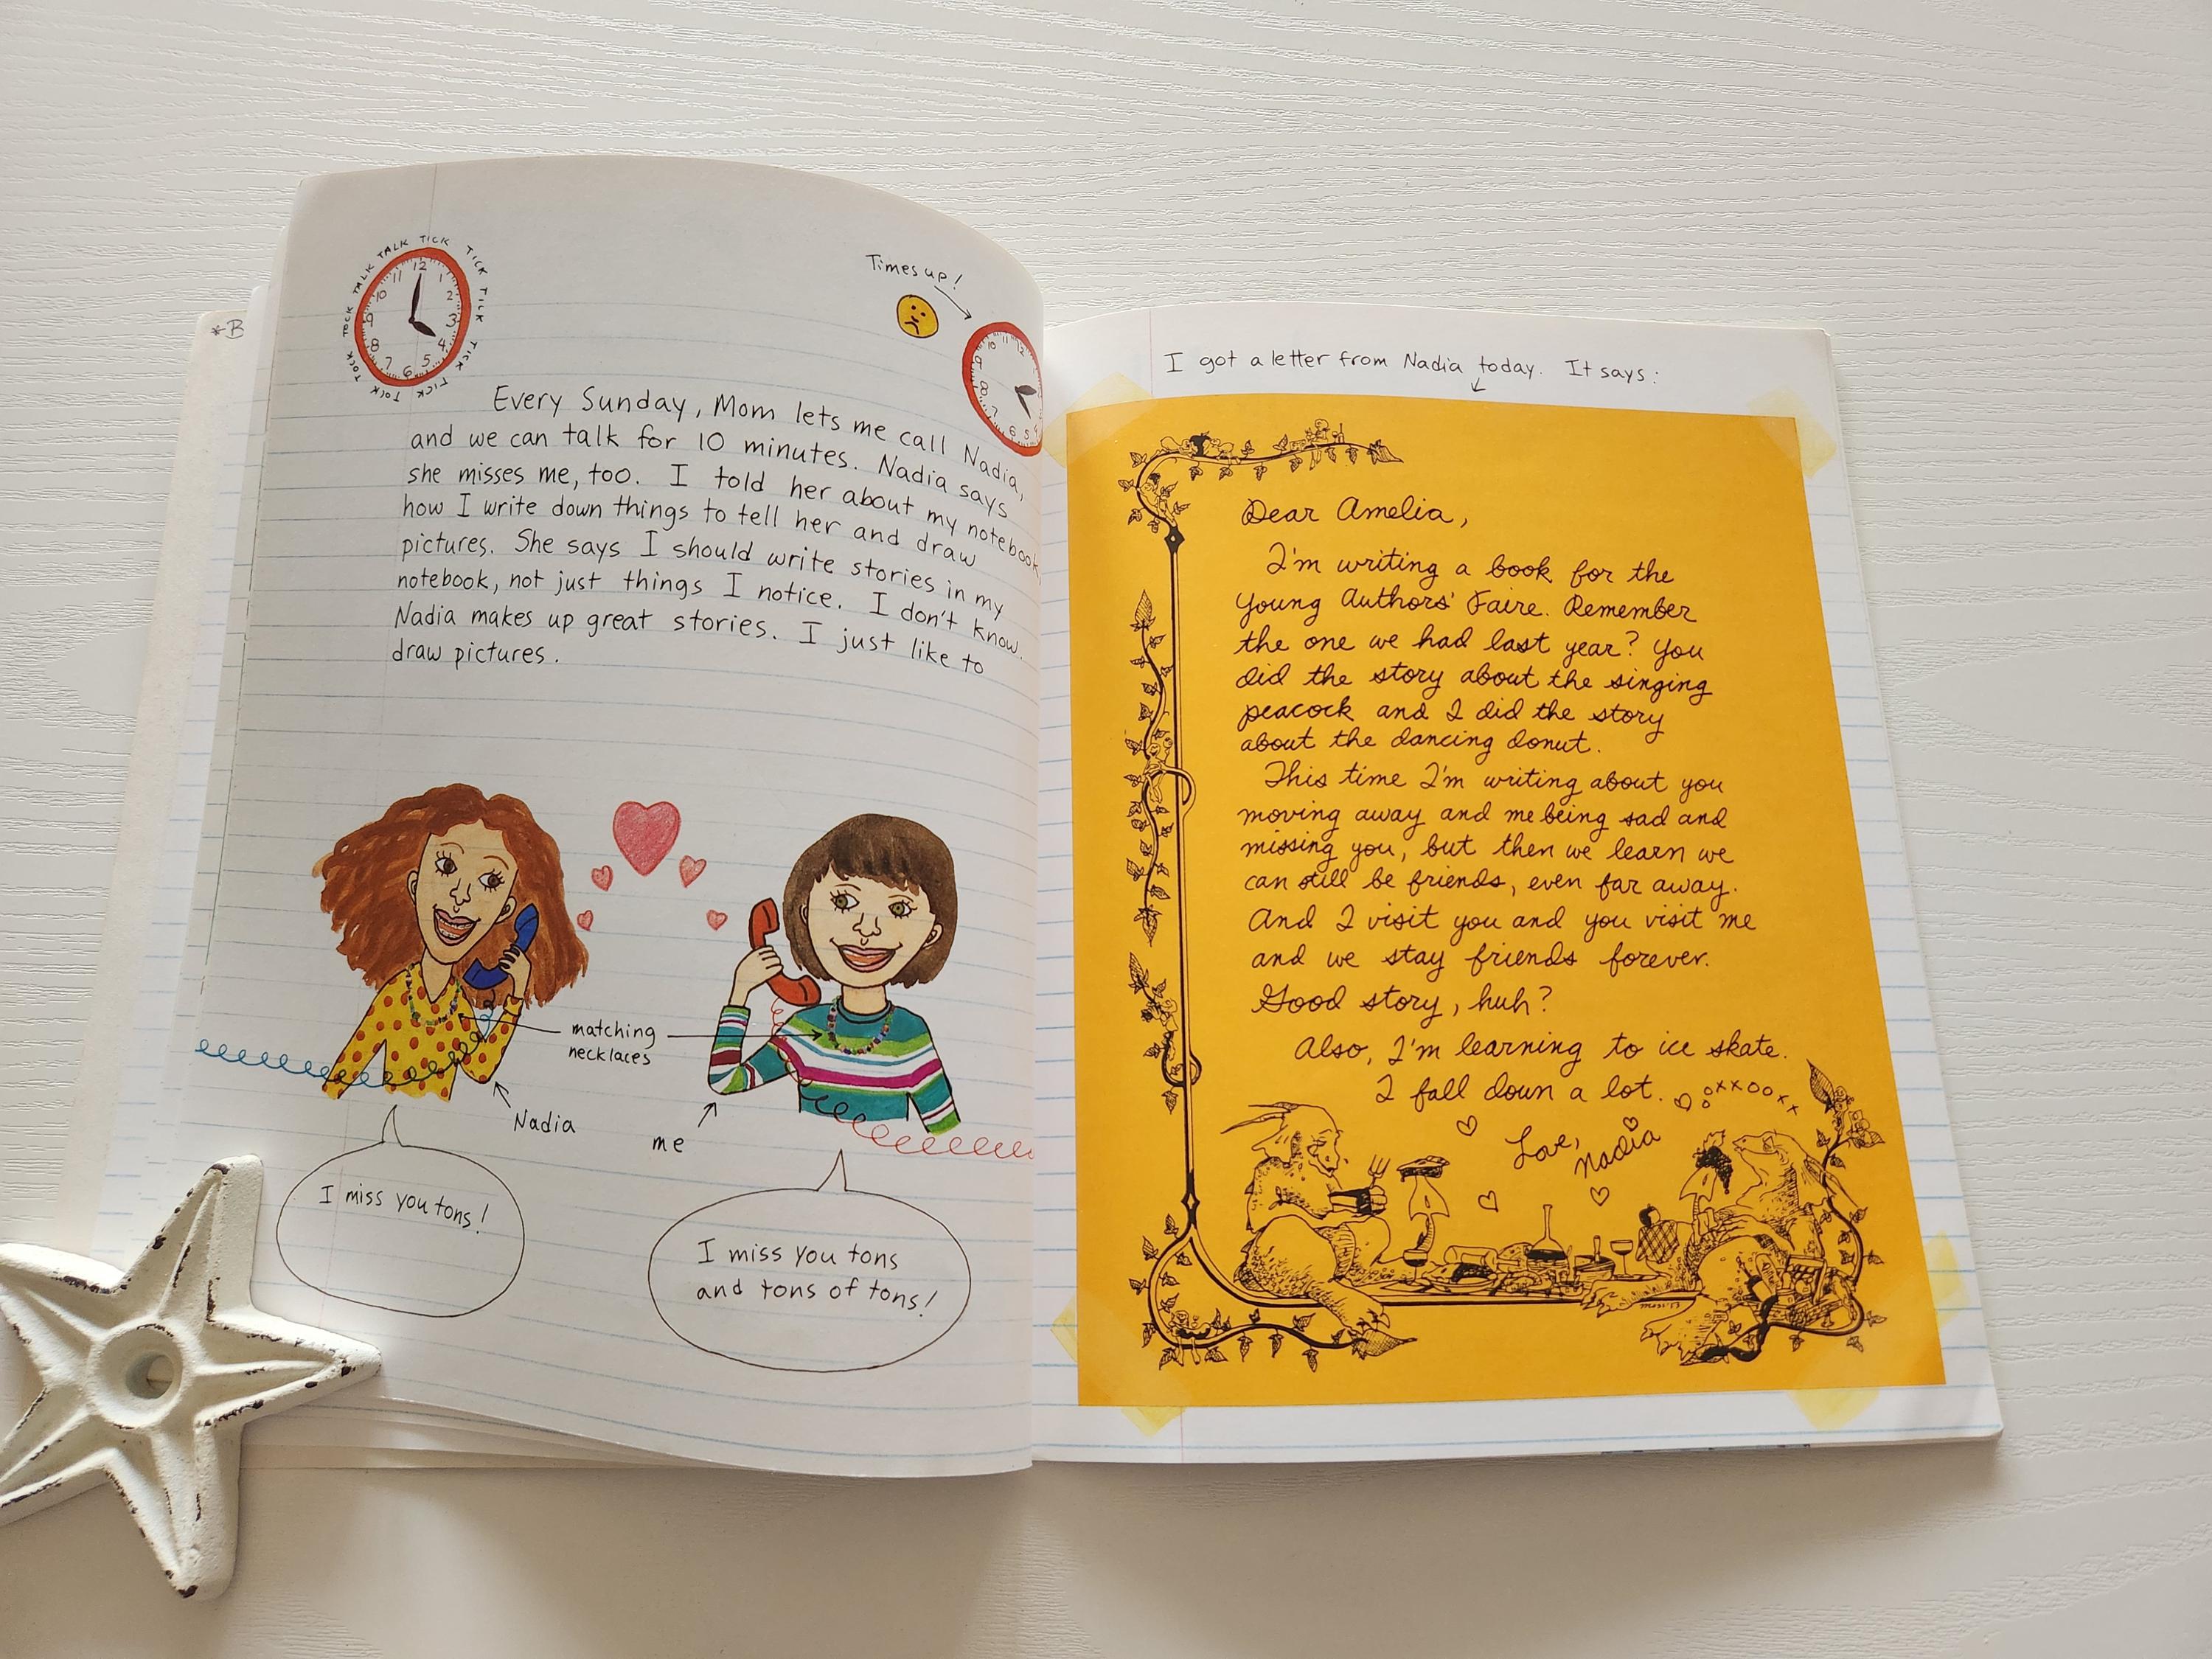 *B
TICK TICK TICK TICK TICK TOCK TOCK TOCK TALK TALK
12
1
2
3
4
5
6
7
8
9
10
11
Times up!
Every Sunday, Mom lets me call Nadia,
and we can talk for 10 minutes. Nadia says
she misses me, too. I told her about my notebook,
how I write down things to tell her and draw
pictures. She says I should write stories in my
notebook, not just things I notice. I don't know.
Nadia makes up great stories. I just like to
draw pictures.
matching
necklaces
Nadia
me
I miss you tons!
I miss you tons
and tons of tons!
I got a letter from Nadia today. It says:
Dear Amelia,
I'm writing a book for the
Young Authors' Faire. Remember
the one we had last year? You
did the story about the singing
peacock and I did the story
about the dancing donut.
This time I'm writing about you
moving away and me being sad and
missing you, but then we learn we
can still be friends, even far away.
And I visit you and you visit me
and we stay friends forever.
Good story, huh?
Also, I'm learning to ice skate.
I fall down a lot.
oxxooxx
Love,
Nadia